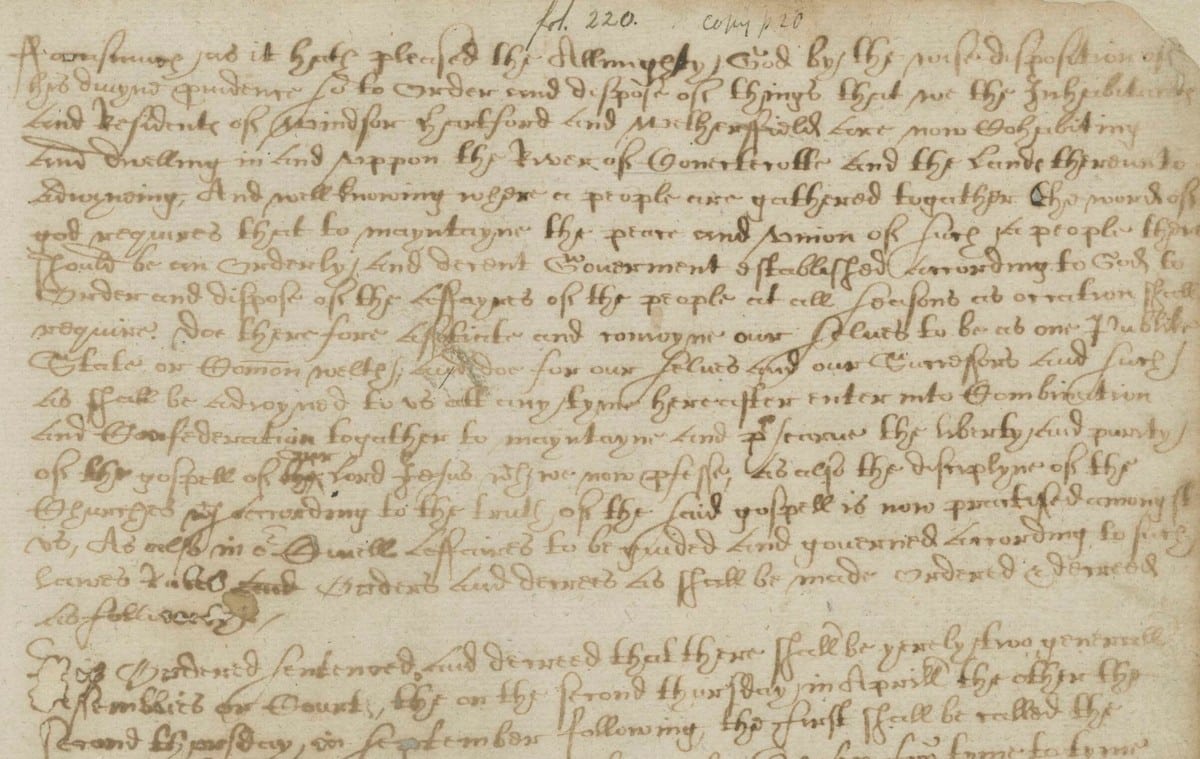 fol. 220. copy p 20
Forasmuch as it hath pleased the Allmighty God by the wise disposition of
his divyne pruidence so to Order and dispose of things that we the Inhabitants
and Residents of Windsor Harteford and Wethersfield are now Cohabiting
and dwelling in and uppon the River of Conectecotte and the Lands thereunto
adioyneing, And well knowing where a people are gathered togather the word of
god requires that to mayntayne the peace and union of such a people there
should be an orderly and decent Goverment established according to God, to
Order and dispose of the affayres of the people at all seasons as occation shall
require. doe therefore assotiate and conioyne our selves to be as one Publike
State or Comon welth, and doe for our selves and our Successors and such
as shall be adioyned to vs att any tyme hereafter enter into Combination
and Confederation togather to mayntayne and pʳsearve the liberty and purity
of the gospell of our Lord Jesus wch we now pfesse, as also the disciplyne of the
Churches wch according to the truth of the said gospell is now practised amongst
vs, As also in oʳ Civell affaires to be guided and governed according to such
Lawes Rules Orders and decrees as shall be made ordered & decreed
as followeth
Ordered sentenced and decreed that there shall be yerely two generall
Assemblies or Courts, the on the second thursday in Aprill, the other the
second thursday in September following, the first shall be called the
tyme to tyme